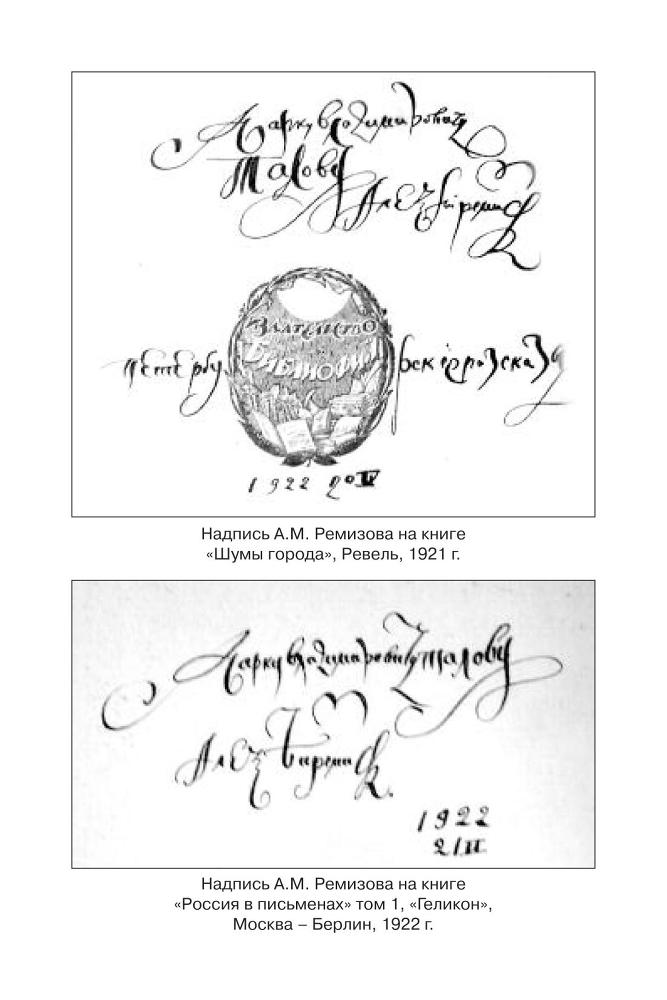 Марку Владимировичу
Талову
Алексей Ремизов
Петербургские рассказы
1922 20 IV
Надпись А.М. Ремизова на книге
«Шумы города», Ревель, 1921 г.
Марку Владимировичу Талову
Алексей Ремизов
1922
21 II
Надпись А.М. Ремизова на книге
«Россия в письменах» том 1, «Геликон»,
Москва – Берлин, 1922 г.